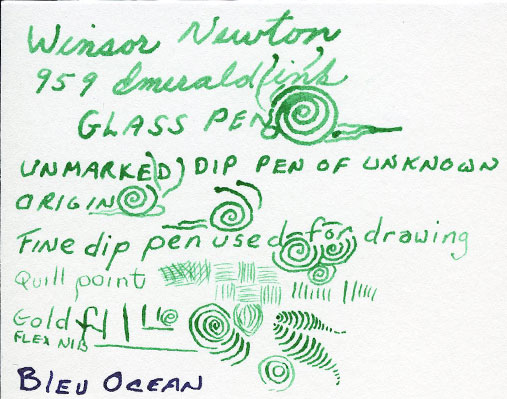 Winsor Newton
959 Emerald ink
GLASS PEN
UNMARKED DIP PEN OF UNKNOWN
ORIGIN
Fine dip pen used for drawing
Quill point
Gold
FLEX NIB
BLEU OCEAN